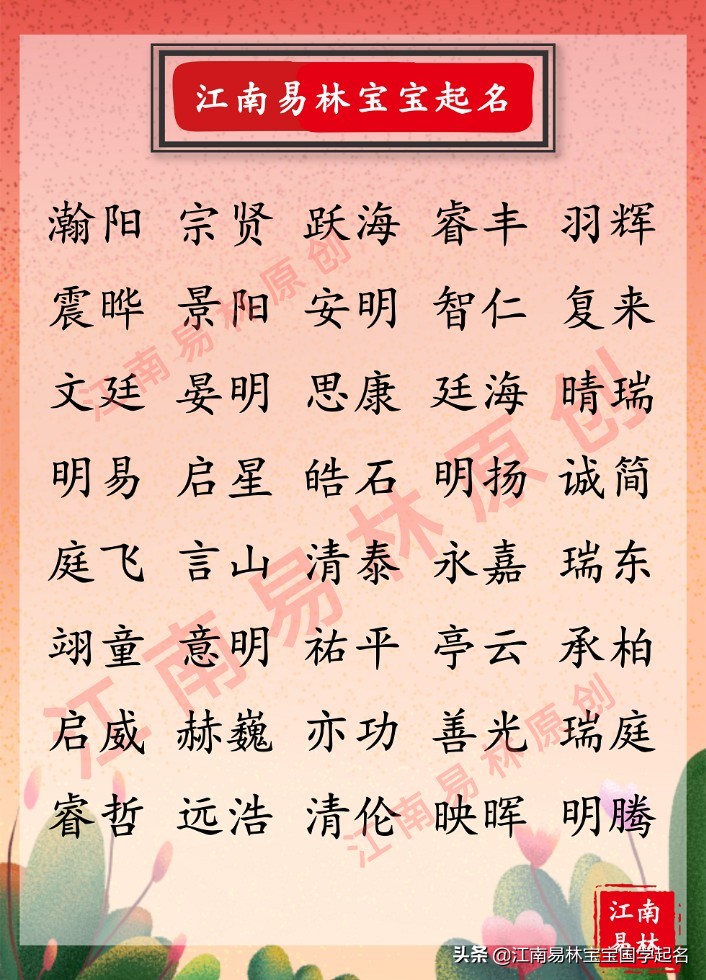 江南易林宝宝起名
瀚阳 宗贤 跃海 睿丰 羽辉
震晔 景阳 安明 智仁 复来
文廷 晏明 思康 廷海 晴瑞
明易 启星 皓石 明扬 诚简
庭飞 言山 清泰 永嘉 瑞东
翊童 意明 祐平 亭云 承柏
启威 赫巍 亦功 善光 瑞庭
睿哲 远浩 清伦 映晖 明腾
江南易林原创
江南易林原创
江南易林原创
江南
易林
头条 @江南易林宝宝国学起名